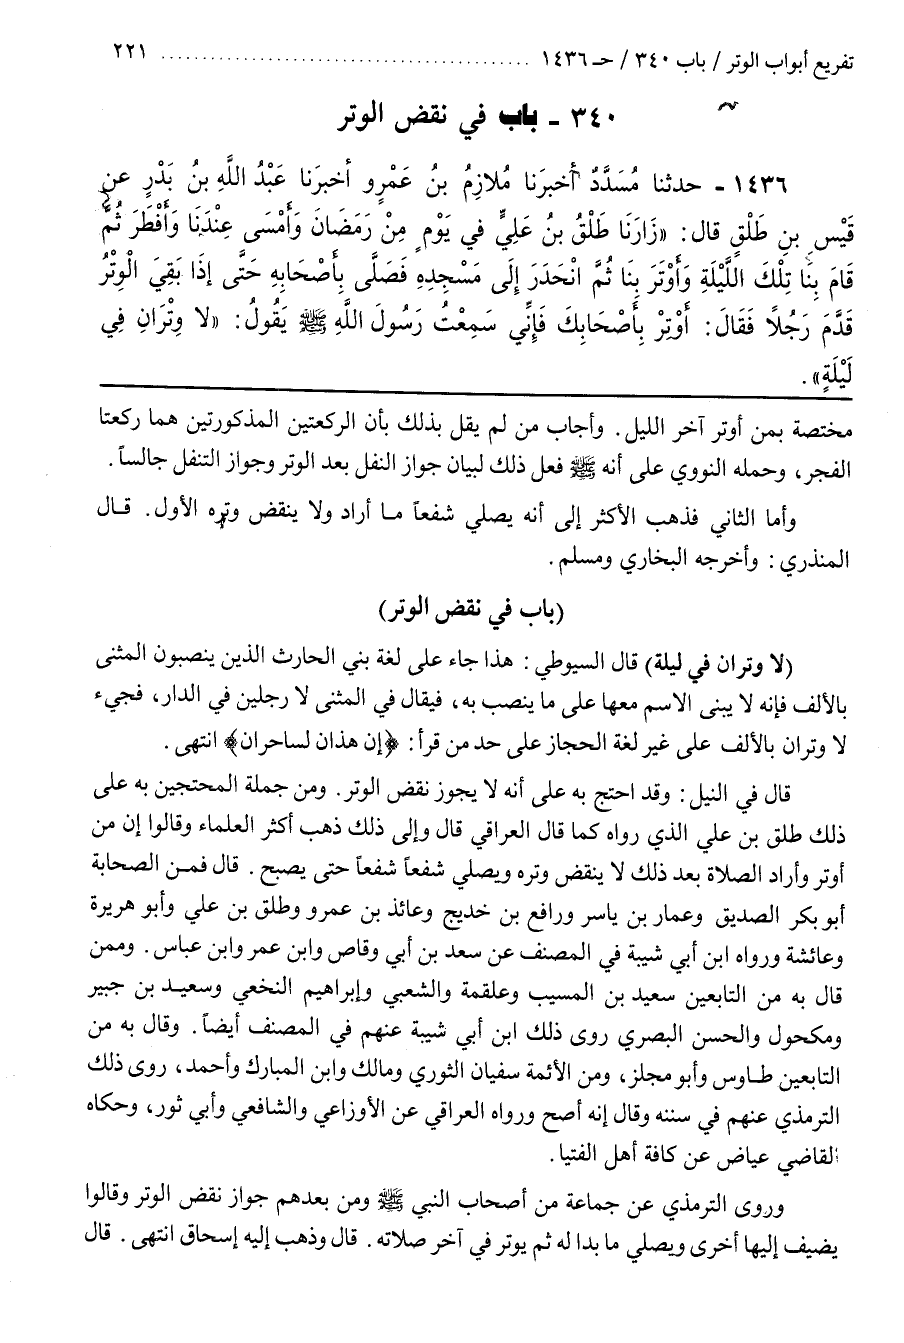 تفريع أبواب الوتر / باب ٣٤٠ / حـ ١٤٣٦ ........................................ ٢٢١
٣٤٠ - باب في نقض الوتر
١٤٣٦ - حدثنا مُسَدَّدٌ أَخبرَنا مُلازِمُ بنُ عَمْرٍو أخبرَنا عَبْدُ اللَّهِ بنُ بَدْرٍ عن
قَيْسِ بنِ طَلْقٍ قال: «زَارَنَا طَلْقُ بنُ عَلِيٍّ في يَوْمٍ مِنْ رَمَضَانَ وَأَمْسَى عِنْدَنَا وَأَفْطَرَ ثُمَّ
قَامَ بِنَا تِلْكَ اللَّيْلَةِ وَأَوْتَرَ بِنَا ثُمَّ انْحَدَرَ إِلَى مَسْجِدِهِ فَصَلَّى بِأَصْحَابِهِ حَتَّى إِذَا بَقِيَ الْوِتْرُ
قَدَّمَ رَجُلاً فَقَالَ: أَوْتِرْ بِأَصْحَابِكَ فَإِنِّي سَمِعْتُ رَسُولَ اللَّهِ ﷺ يَقُولُ: «لا وِتْرَانِ فِي
لَيْلَةٍ».
مختصة بمن أوتر آخر الليل. وأجاب من لم يقل بذلك بأن الركعتين المذكورتين هما ركعتا
الفجر، وحمله النووي على أنه ﷺ فعل ذلك لبيان جواز النفل بعد الوتر وجواز التنفل جالساً.
وأما الثاني فذهب الأكثر إلى أنه يصلي شفعاً ما أراد ولا ينقض وتره الأول. قال
المنذري: وأخرجه البخاري ومسلم.
(باب في نقض الوتر)
(لا وتران في ليلة) قال السيوطي: هذا جاء على لغة بني الحارث الذين ينصبون المثنى
بالألف فإنه لا يبنى الاسم معها على ما ينصب به، فيقال في المثنى لا رجلين في الدار، فجيء
لا وتران بالألف على غير لغة الحجاز على حد من قرأ: ﴿إن هذان لساحران﴾ انتهى.
قال في النيل: وقد احتج به على أنه لا يجوز نقض الوتر. ومن جملة المحتجين به على
ذلك طلق بن علي الذي رواه كما قال العراقي قال وإلى ذلك ذهب أكثر العلماء وقالوا إن من
أوتر وأراد الصلاة بعد ذلك لا ينقض وتره ويصلي شفعاً شفعاً حتى يصبح. قال فمن الصحابة
أبو بكر الصديق وعمار بن ياسر ورافع بن خديج وعائذ بن عمرو وطلق بن علي وأبو هريرة
وعائشة ورواه ابن أبي شيبة في المصنف عن سعد بن أبي وقاص وابن عمر وابن عباس. وممن
قال به من التابعين سعيد بن المسيب وعلقمة والشعبي وإبراهيم النخعي وسعيد بن جبير
ومكحول والحسن البصري روى ذلك ابن أبي شيبة عنهم في المصنف أيضاً. وقال به من
التابعين طاوس وأبو مجلز، ومن الأئمة سفيان الثوري ومالك وابن المبارك وأحمد، روى ذلك
الترمذي عنهم في سننه وقال إنه أصح ورواه العراقي عن الأوزاعي والشافعي وأبي ثور، وحكاه
القاضي عياض عن كافة أهل الفتيا.
وروى الترمذي عن جماعة من أصحاب النبي ﷺ ومن بعدهم جواز نقض الوتر وقالوا
يضيف إليها أخرى ويصلي ما بدا له ثم يوتر في آخر صلاته. قال وذهب إليه إسحاق انتهى. قال